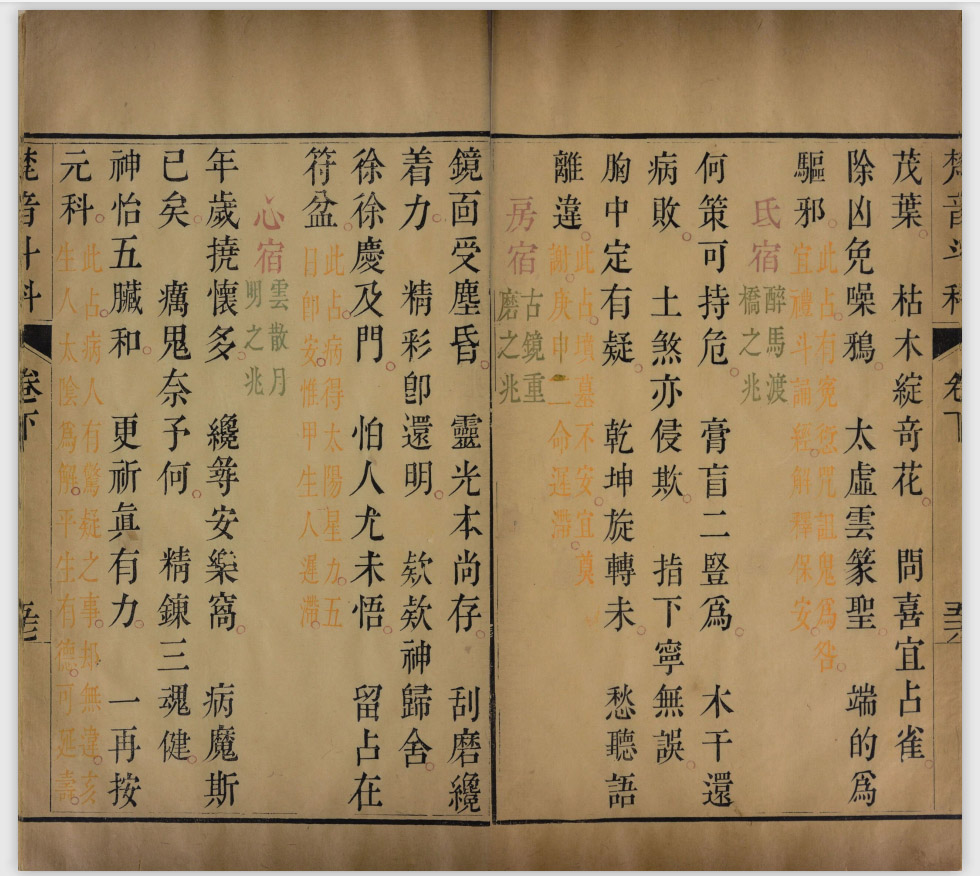 梵音斗科 卷下
茂葉。枯木綻奇花。問喜宜占雀。
除凶免噪鴉。太虛雲篆聖。端的為
驅邪。此占有冤愆咒詛鬼為咎。
宜禮斗誦經。解釋保安。
氐宿 醉馬渡
橋之兆
何策可持危。膏盲二豎為。木干還
病敗。土煞亦侵欺。指下寧無誤。
胸中定有疑。乾坤旋轉未。愁聽語
離違。此占墳墓不安。宜奠
謝。庚申一命遲滯。
房宿 古鏡重
磨之兆
鏡面受塵昏。靈光本尚存。刮磨纔
着力。精彩卽還明。欸欸神歸舍。
徐徐慶及門。怕人尤未悟。留占在
符盆。此占病得太陽星力。五
日卽安。惟甲生人遲滯。
心宿 雲散月
明之兆
年歲撓懷多。纔尋安樂窩。病魔斯
已矣。癘鬼奈予何。精鍊三魂健。
神怡五臟和。更祈眞有力。一再按
元科。此占病人有驚疑之事。却無違。亥
生人太陰為解。平生有德。可延壽。
梵音斗科 卷下